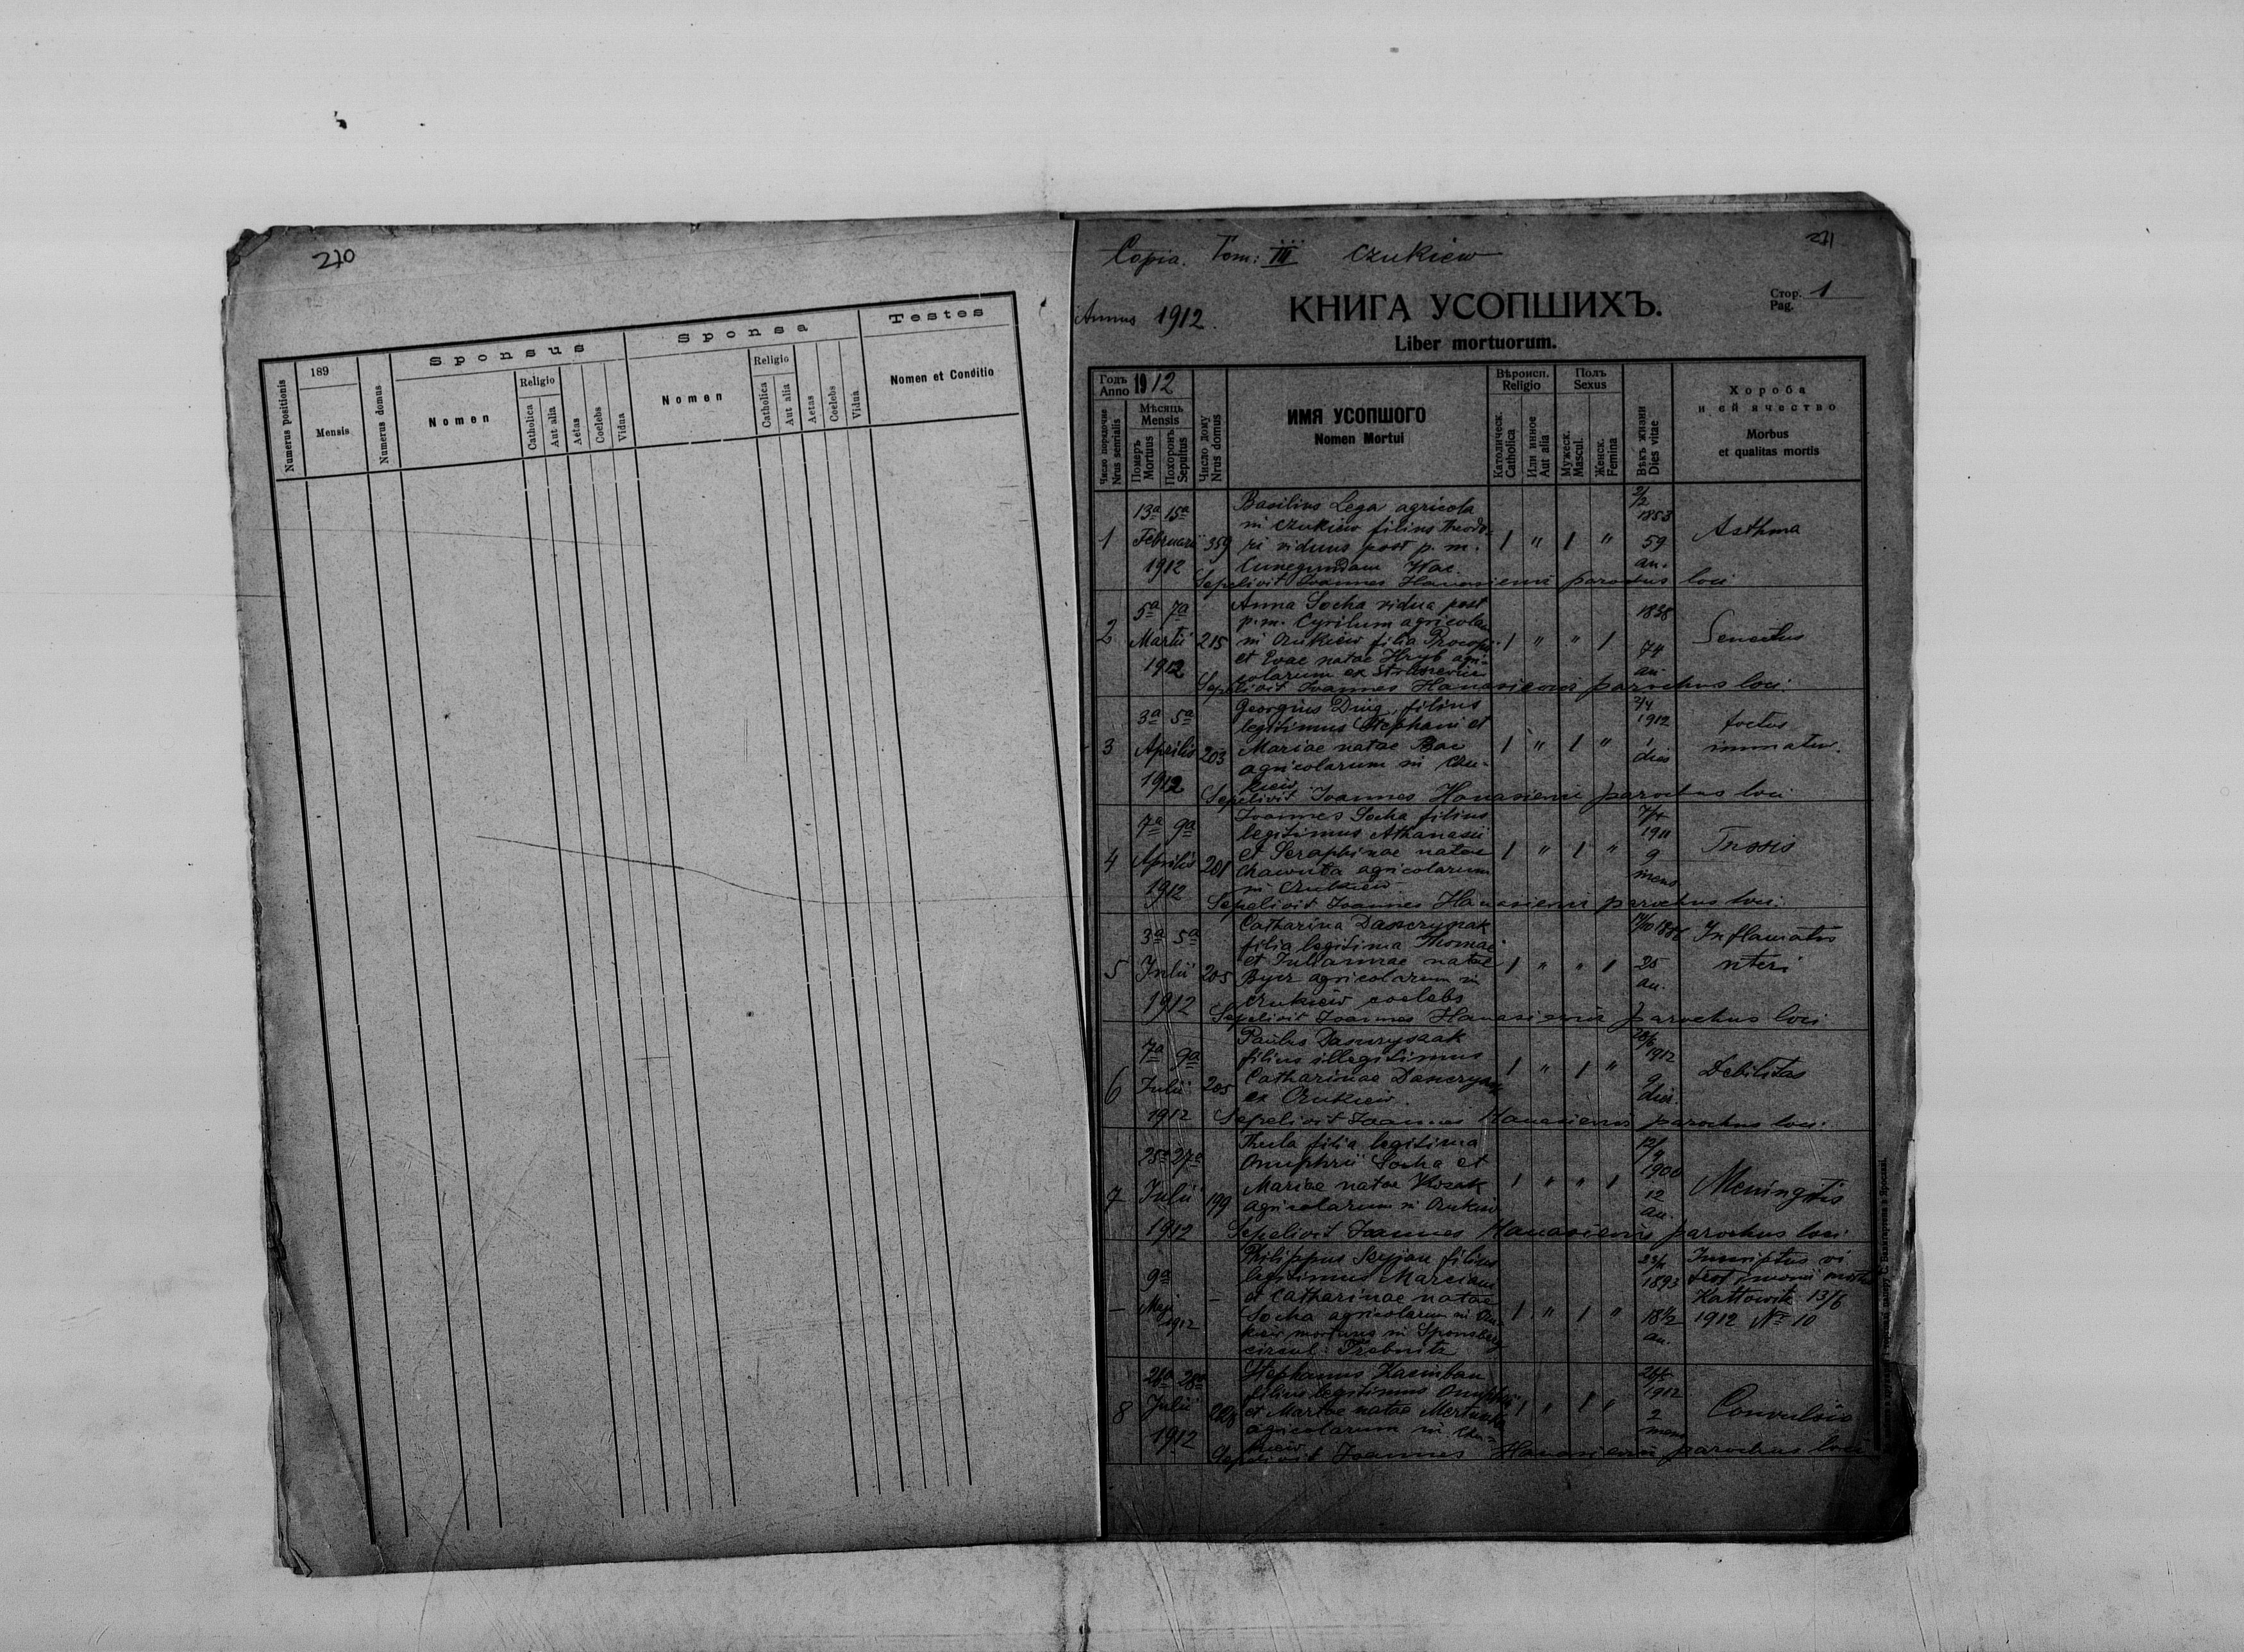 270
189
Mensis
Numerus positionis
Numerus domus
Sponsus
Nomen
Religio
Catholica
Aut alia
Aetas
Coelebs
Vidua
Sponsa
Nomen
Religio
Catholica
Aut alia
Aetas
Coelebs
Vidua
Testes
Nomen et Conditio
271
Copia. Tom: III Czukiew
Annus 1912.
КНИГА УСОПШИХЪ.
Liber mortuorum.
Стор. 1
Pag.
Годъ 1912
Anno
Число порядочне
Nrus serialis
Мѣсяць
Mensis
Померъ
Mortuus
Похоронъ
Sepultus
Число дому
Nrus domus
ИМЯ УСОПШОГО
Nomen Mortui
Вѣроисп.
Religio
Католическ.
Catholica
Или инное
Aut alia
Полъ
Sexus
Мужеск.
Mascul.
Женск.
Femina
Вѣкъ жизни
Dies vitae
Хороба
и ей ячество
Morbus
et qualitas mortis
1
13a 15a
Februarii
1912
359
Basilius Lega agricola
in Czukiew filius Theodo-
ri viduus post p. m.
Cunegundam
1 " 1 "
2/2
1853
59
an.
Asthma
Sepelivit Joannes Hanasiewicz parochus loci
2
5a 7a
Martii
1912
215
Anna Socha vidua post
p. m. Cyrilum agricolam
in Czukiew filia Procopii
et Evae natae Hryb agri-
colarum ex
1 " " 1
1838
74
an.
Senectus
Sepelivit Joannes Hanasiewicz parochus loci.
3
3a 5a
Aprilis
1912
203
Georgius Drug, filius
legitimus Stephani et
Mariae natae Bac
agricolarum in Czu-
kiew
1 " 1 "
2/4
1912
1
dies
foetus
immatur.
Sepelivit Joannes Hanasiewicz parochus loci
4
7a 9a
Aprilis
1912
201
Joannes Socha filius
legitimus Athanasii
et Seraphinae natae
agricolarum
in Czukiew
1 " 1 "
1911
9
mens
Tussis
Sepelivit Joannes Hanasiewicz parochus loci.
5
3a 5a
Julii
1912
205
Catharina
filia legitima Thomae
et Juliannae natae
agricolarum in
Czukiew coelebs
1 " " 1
25
an.
Inflamatio
uteri
Sepelivit Joannes Hanasiewicz parochus loci
6
7a 9a
Julii
1912
205
Paulus
filius illegitimus
Catharinae
ex Czukiew.
1 " 1 "
1912
9
dies.
Debilitas
Sepelivit Joannes Hanasiewicz parochus loci.
7
25a 27a
Julii
1912
199
Thecla filia legitima
Onuphrii Socha et
Mariae natae Kozak
agricolarum in Czukiew
1 " " 1
1900
12
an.
Meningitis
Sepelivit Joannes Hanasiewicz parochus loci
—
9a
Maji
1912
—
Philippus filius
legitimus Marciani
et Catharinae natae
Socha agricolarum in Czu-
kiew mortuus in
circul. Trebnitz
1 " 1 "
1893
18 1/2
an.
Inscriptus vi
Kattowitz 13/6
1912 No 10
8
26a 28a
Julii
1912
Stephanus
filius legitimus Onuphrii
et Martae natae
agricolarum in Czu-
kiew
1 " 1 "
1912
2
mens
Convulsio
Sepelivit Joannes Hanasiewicz parochus loci